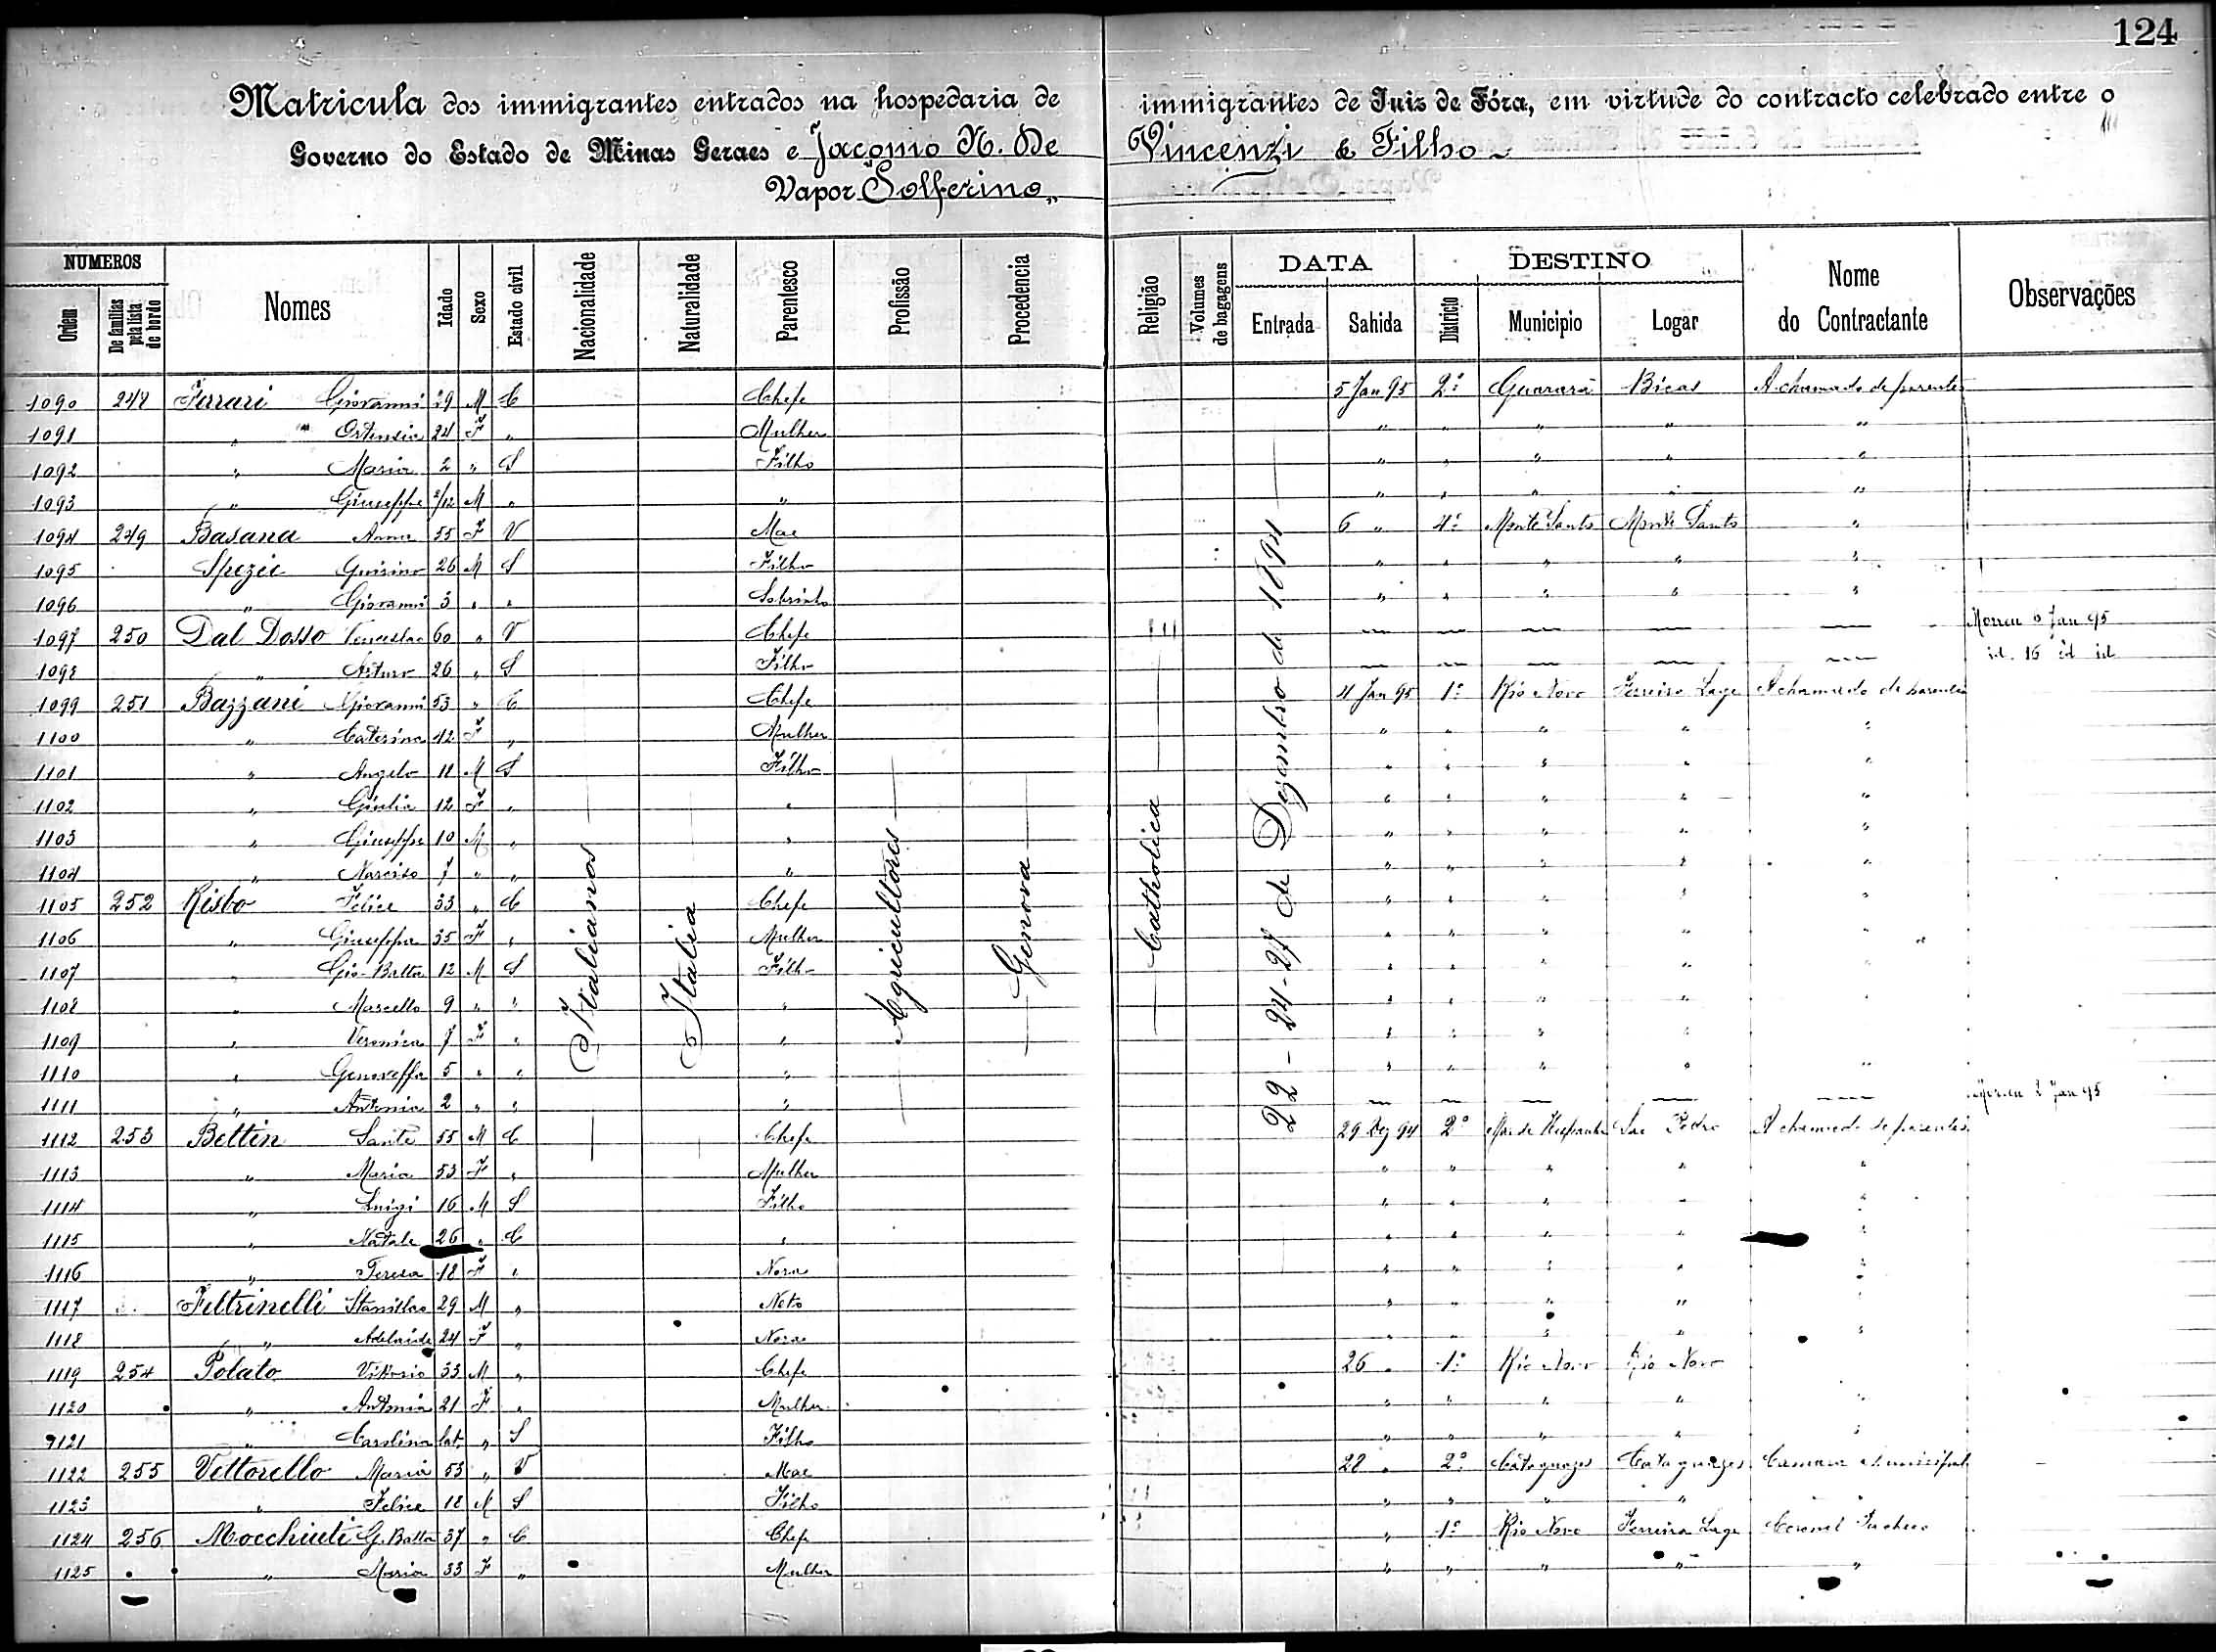 124
Matricula dos immigrantes entrados na hospedaria de immigrantes de Juiz de Fóra, em virtude do contracto celebrado entre o
Governo do Estado de Minas Geraes e Jacomo N. De Vincenzi & Filho
Vapor Solferino
NUMEROS DATA DESTINO
Ordem De familias pela lista de bordo Nomes Idade Sexo Estado civil Nacionalidade Naturalidade Parentesco Profissão Procedencia Religião Volumes de bagagens Entrada Sahida Districto Municipio Logar Nome do Contractante Observações
Italianos Italia Agricultores Genova Catholica 22-24-27 de Dezembro de 1894
1090 248 Ferrari Giovanni 29 M C Chefe 5 Jan 95 2º Guarará Bicas A chamado de parentes
1091 " Ortensia 24 F " Mulher " " " " "
1092 " Maria 2 " S Filho " " " " "
1093 " Giuseppe 2/12 M " " " " " " "
1094 249 Basana Anna 55 F V Mae 6 " 4º Monte Santo Monte Santo "
1095 Spezie Guirino 26 M S Filho " " " " "
1096 " Giovanni 3 " " Sobrinho " " " " "
1097 250 Dal Dosso Venceslao 60 " V Chefe — — — — — Morreu 6 Jan 95
1098 " Arturo 26 " S Filho — — — — — id. 16 id id
1099 251 Bazzani Giovanni 53 " C Chefe 4 Jan 95 1º Rio Novo Ferreira Lage A chamado de parentes
1100 " Caterina 42 F " Mulher " " " " "
1101 " Angelo 11 M S Filho " " " " "
1102 " Giulia 12 F " " " " " " "
1103 " Giuseppe 10 M " " " " " " "
1104 " Narciso 7 " " " " " " " "
1105 252 Risbo Felice 33 " C Chefe " " " " "
1106 " Giuseppa 35 F " Mulher " " " " "
1107 " Gio-Batta 12 M S Filho " " " " "
1108 " Marcello 9 " " " " " " " "
1109 " Veronica 7 F " " " " " "
1110 " Genoveffa 5 " " " " " " " "
1111 " Antonia 2 " " " — — — — — Morreu 2 Jan 95
1112 253 Bettin Sante 55 M C Chefe 29 Dez 94 2º Mar de Hespanha Sao Pedro A chamado de parentes
1113 " Maria 53 F " Mulher " " " " "
1114 " Luigi 16 M S Filho " " " " "
1115 " Natale 26 " C " " " " " "
1116 " Teresa 18 F " Nora " " " " "
1117 Feltrinelli Stanislao 29 M " Neto " " " " "
1118 " Adelaide 24 F " Nora " " " " "
1119 254 Polato Vittorio 33 M " Chefe 26 " 1º Rio Novo Rio Novo
1120 " Antonia 21 F " Mulher " " " " "
1121 " Carolina lat. " S Filho " " " " "
1122 255 Vettorello Maria 53 " V Mae 28 " 2º Cataguazes Cataguazes Camara Municipal
1123 " Felice 18 M S Filho " " " " "
1124 256 Mocchiuti G. Batta 37 " C Chefe " 1º Rio Novo Ferreira Lage Coronel Pacheco
1125 " Maria 33 F " Mulher " " " " "